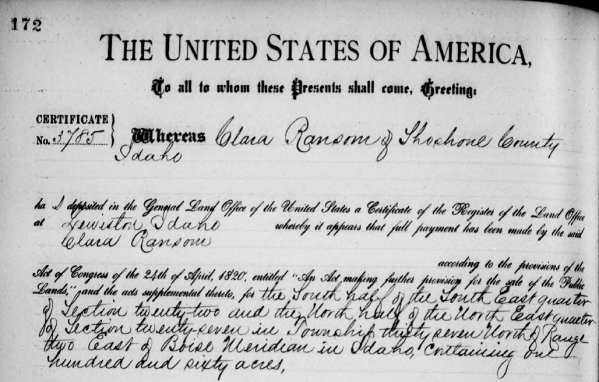 172
THE UNITED STATES OF AMERICA,
To all to whom these Presents shall come, Greeting:
CERTIFICATE
No. 3785 } Whereas Clara Ransom of Shoshone County
Idaho
ha s deposited in the General Land Office of the United States a Certificate of the Register of the Land Office
at Lewiston, Idaho whereby it appears that full payment has been made by the said
Clara Ransom
according to the provisions of the
Act of Congress of the 24th of April, 1820, entitled "An Act making further provision for the sale of the Public
Lands," and the acts supplemental thereto, for the South half of the South East quarter
of Section twenty-two and the North half of the North East quarter
of Section twenty-seven in Township thirty seven North of Range
two East of Boise Meridian in Idaho, containing one
hundred and sixty acres,